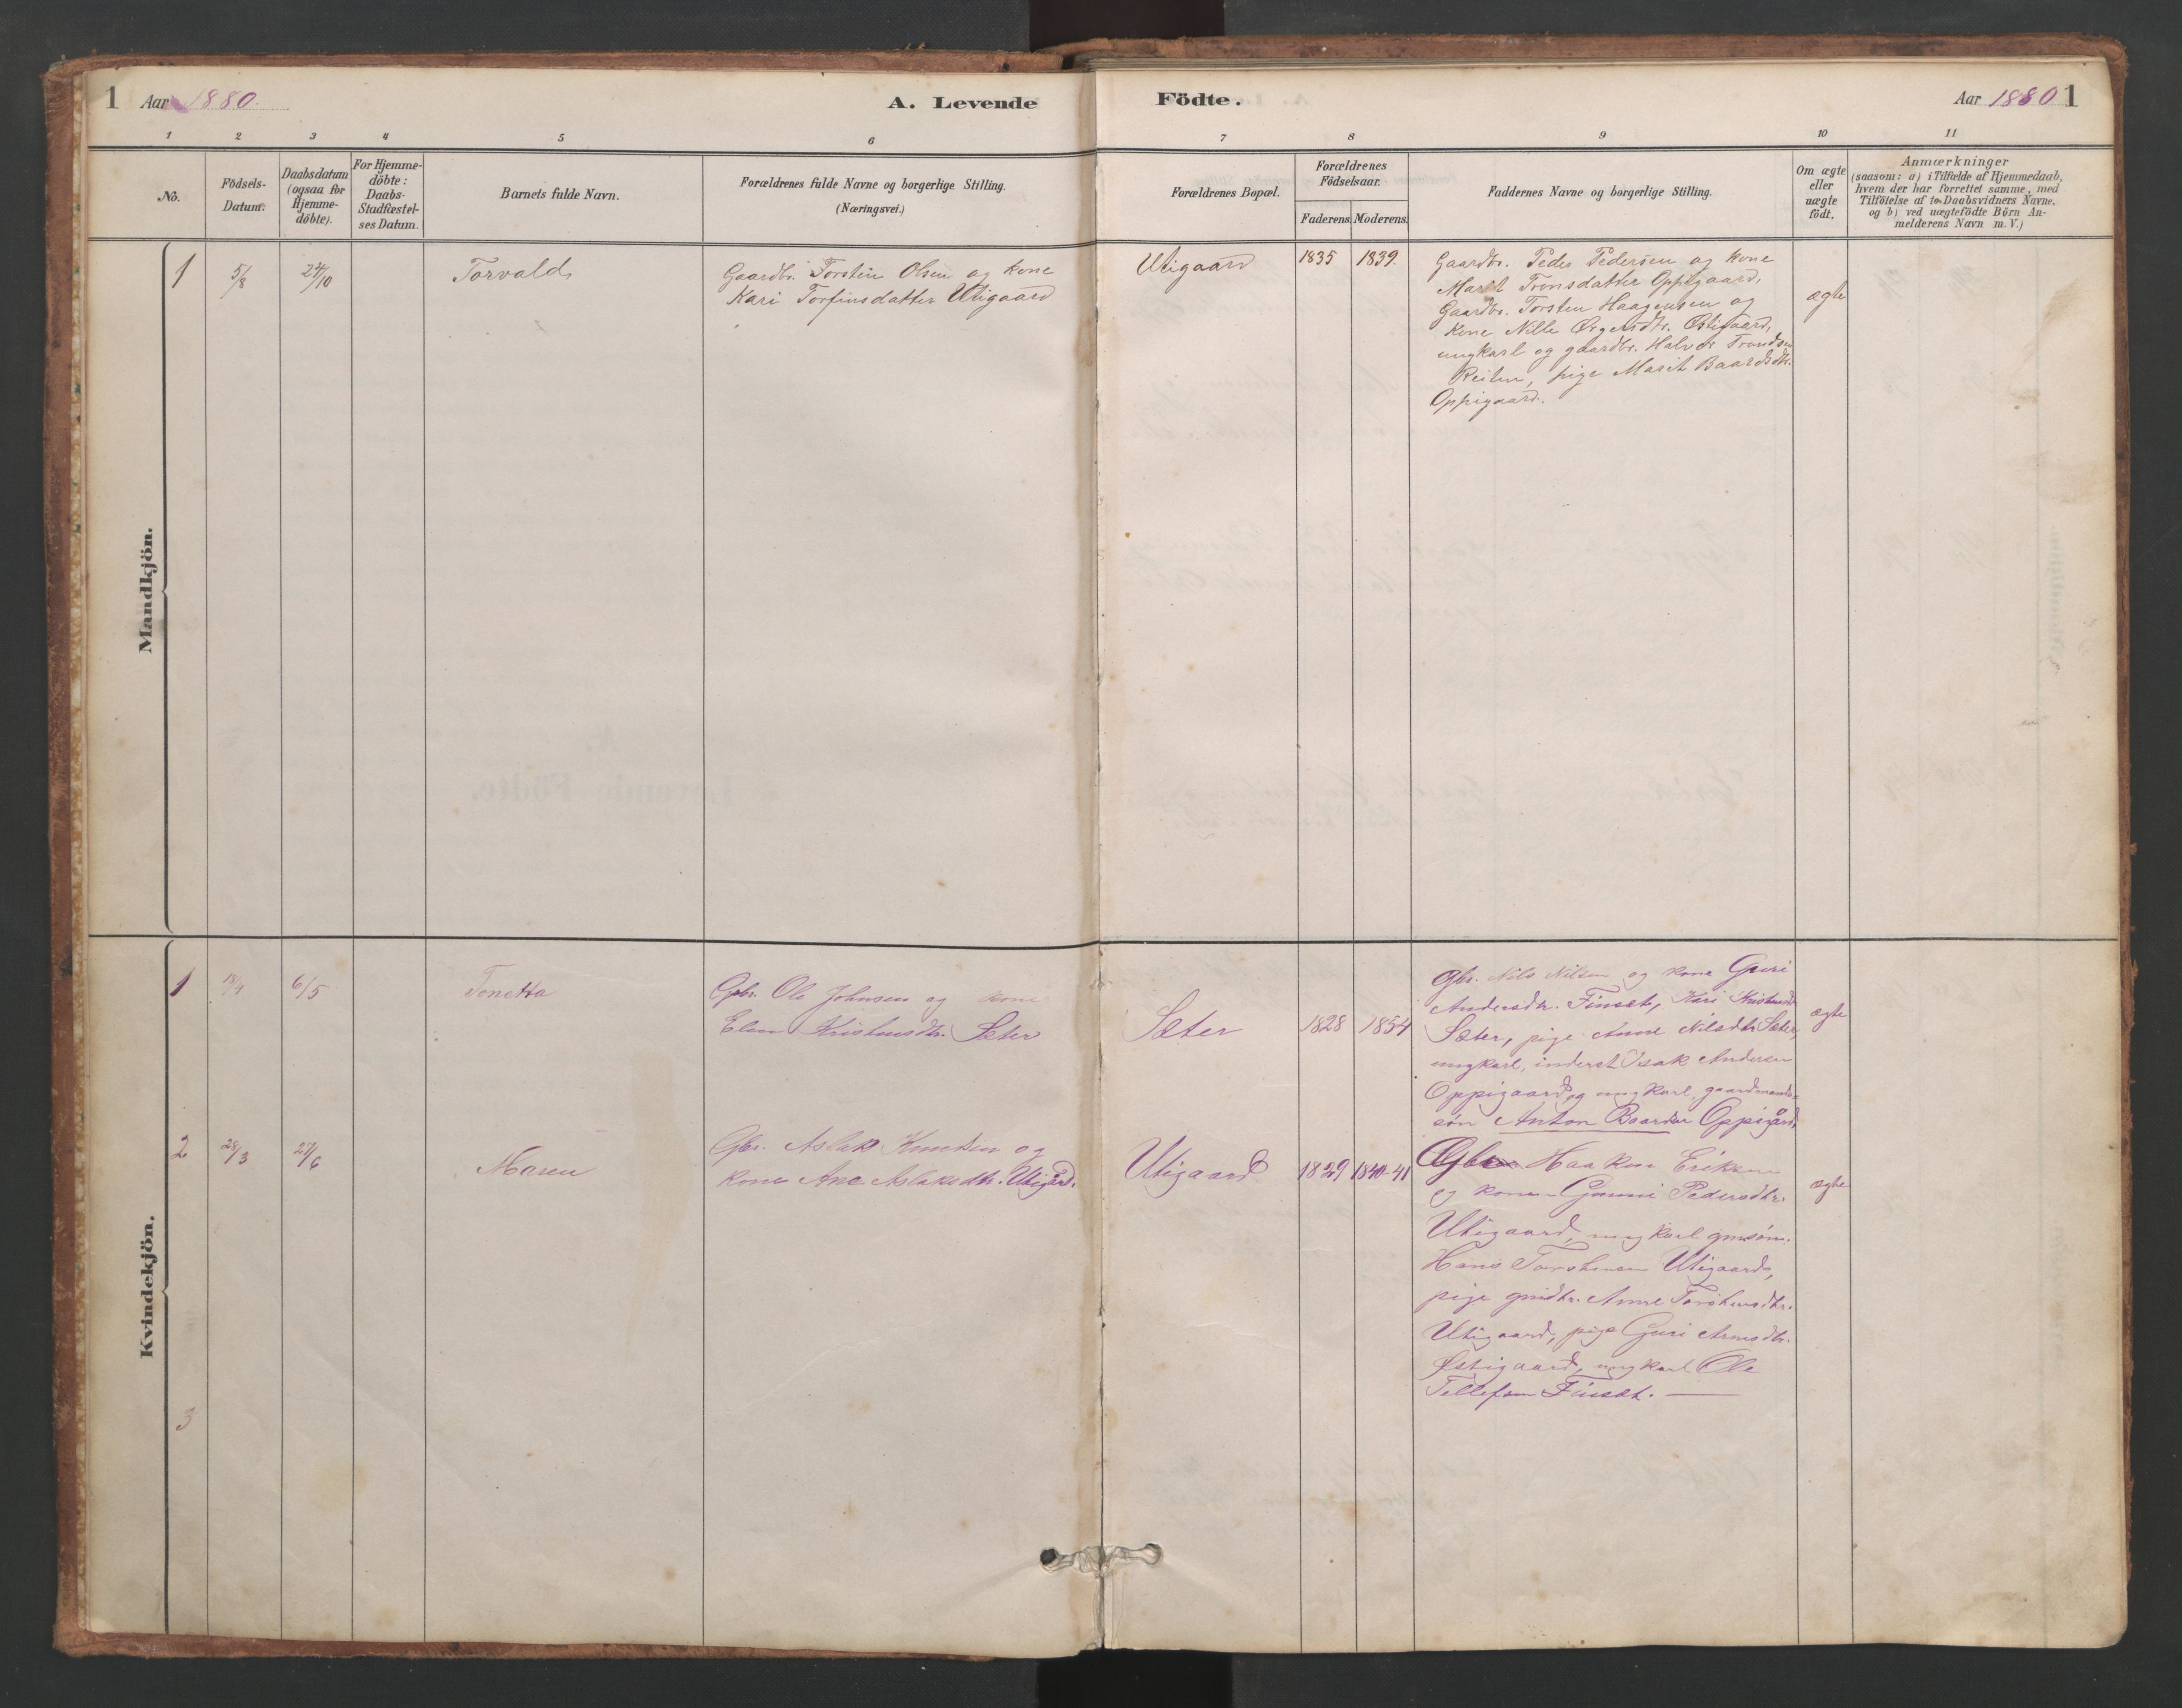 1 Aar 1880. A. Levende Födte. Aar 1880 1
1 2 3 4 5 6 7 8 9 10 11
No.
Födsels-
Datum.
Daabsdatum
(ogsaa for
Hjemme-
döbte).
For Hjemme-
döbte:
Daabs-
Stadfæstel-
ses Datum.
Barnets fulde Navn.
Forældrenes fulde Navne og borgerlige Stilling.
(Næringsvei.)
Forældrenes Bopæl.
Forældrenes
Födselsaar.
Faderens. Moderens.
Faddernes Navne og borgerlige Stilling.
Om ægte
eller
uægte
födt.
Anmærkninger
(saasom: a) i Tilfælde af Hjemmedaab,
hvem der har forrettet samme, med
Tilföielse af to Daabsvidners Navne,
og b) ved uægtefödte Börn An-
melderens Navn m. V.)
Mandkjön.
1 5/8 24/10 Torvald
Gaardbr. Torstein Olsen og kone
Kari Torfinsdatter Utigaard
Utigaard 1835 1839.
Gaardbr. Peder Pedersen og kone
Marit Tronsdatter Oppigaard,
Gaardbr. Torsten Haagensen og
kone Nille Østigaard,
ungkarl og gaardbr. Halvor Trondsen
Reiten, pige Marit Baardsdtr.
Oppigaard.
ægte
Kvindekjön.
1 18/4 6/5 Tonetta
Gbr. Ole Johnsen og kone
Elen Kristensdtr. Sæter
Sæter 1828 1854
Gbr. Nils Nilsen og kone Guri
Andersdtr. Finset, Kari Kristensd.
Sæter, pige Anne Nilsdtr Sæter,
ungkarl, inderst Isak Andersen
Oppigaard og ungkarl, gaardmands-
søn Anton Baardsen Oppigård.
ægte
2 28/3 27/6 Maren
Gbr. Aslak Knutsen og
kone Ane Aslaksdtr. Utigård.
Utigaard 1829 1840-41
Gbr. Haaken Eriksen
og kone Gunni Pedersdtr.
Utigaard, ungkarl gmsøn.
Hans Torstensen Utigaard,
pige gmdtr. Anne Torstensdtr.
Utigaard, pige Guri Arnesdtr.
Østigaard, ungkarl Ole
Tellefsen Finset.
ægte
3